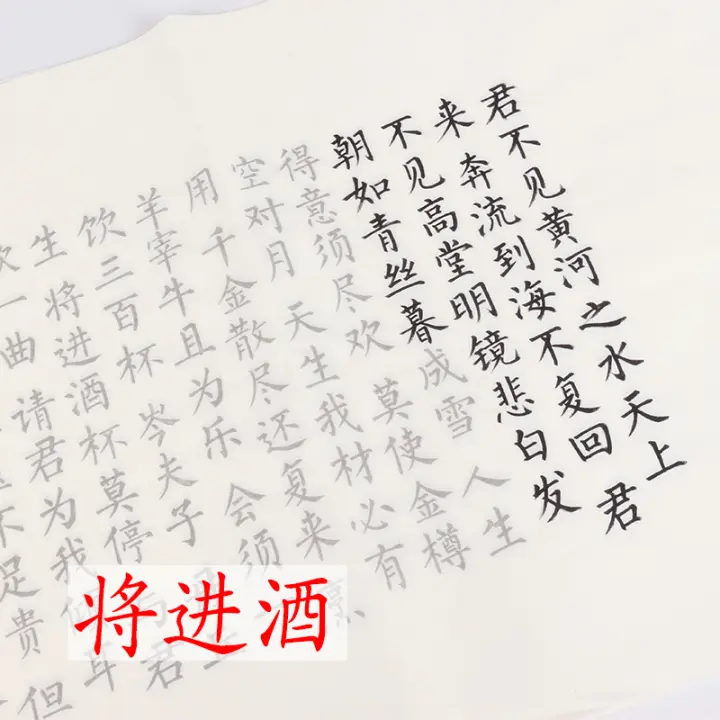 君不见黄河之水天上
来奔流到海不复回君
不见高堂明镜悲白发
朝如青丝暮成雪人生
得意须尽欢莫使金樽
空对月天生我材必有
用千金散尽还复来
羊宰牛且为乐会须
饮三百杯岑夫子
生将进酒杯莫停与君
一曲请君为我倾耳
不足贵但
将进酒